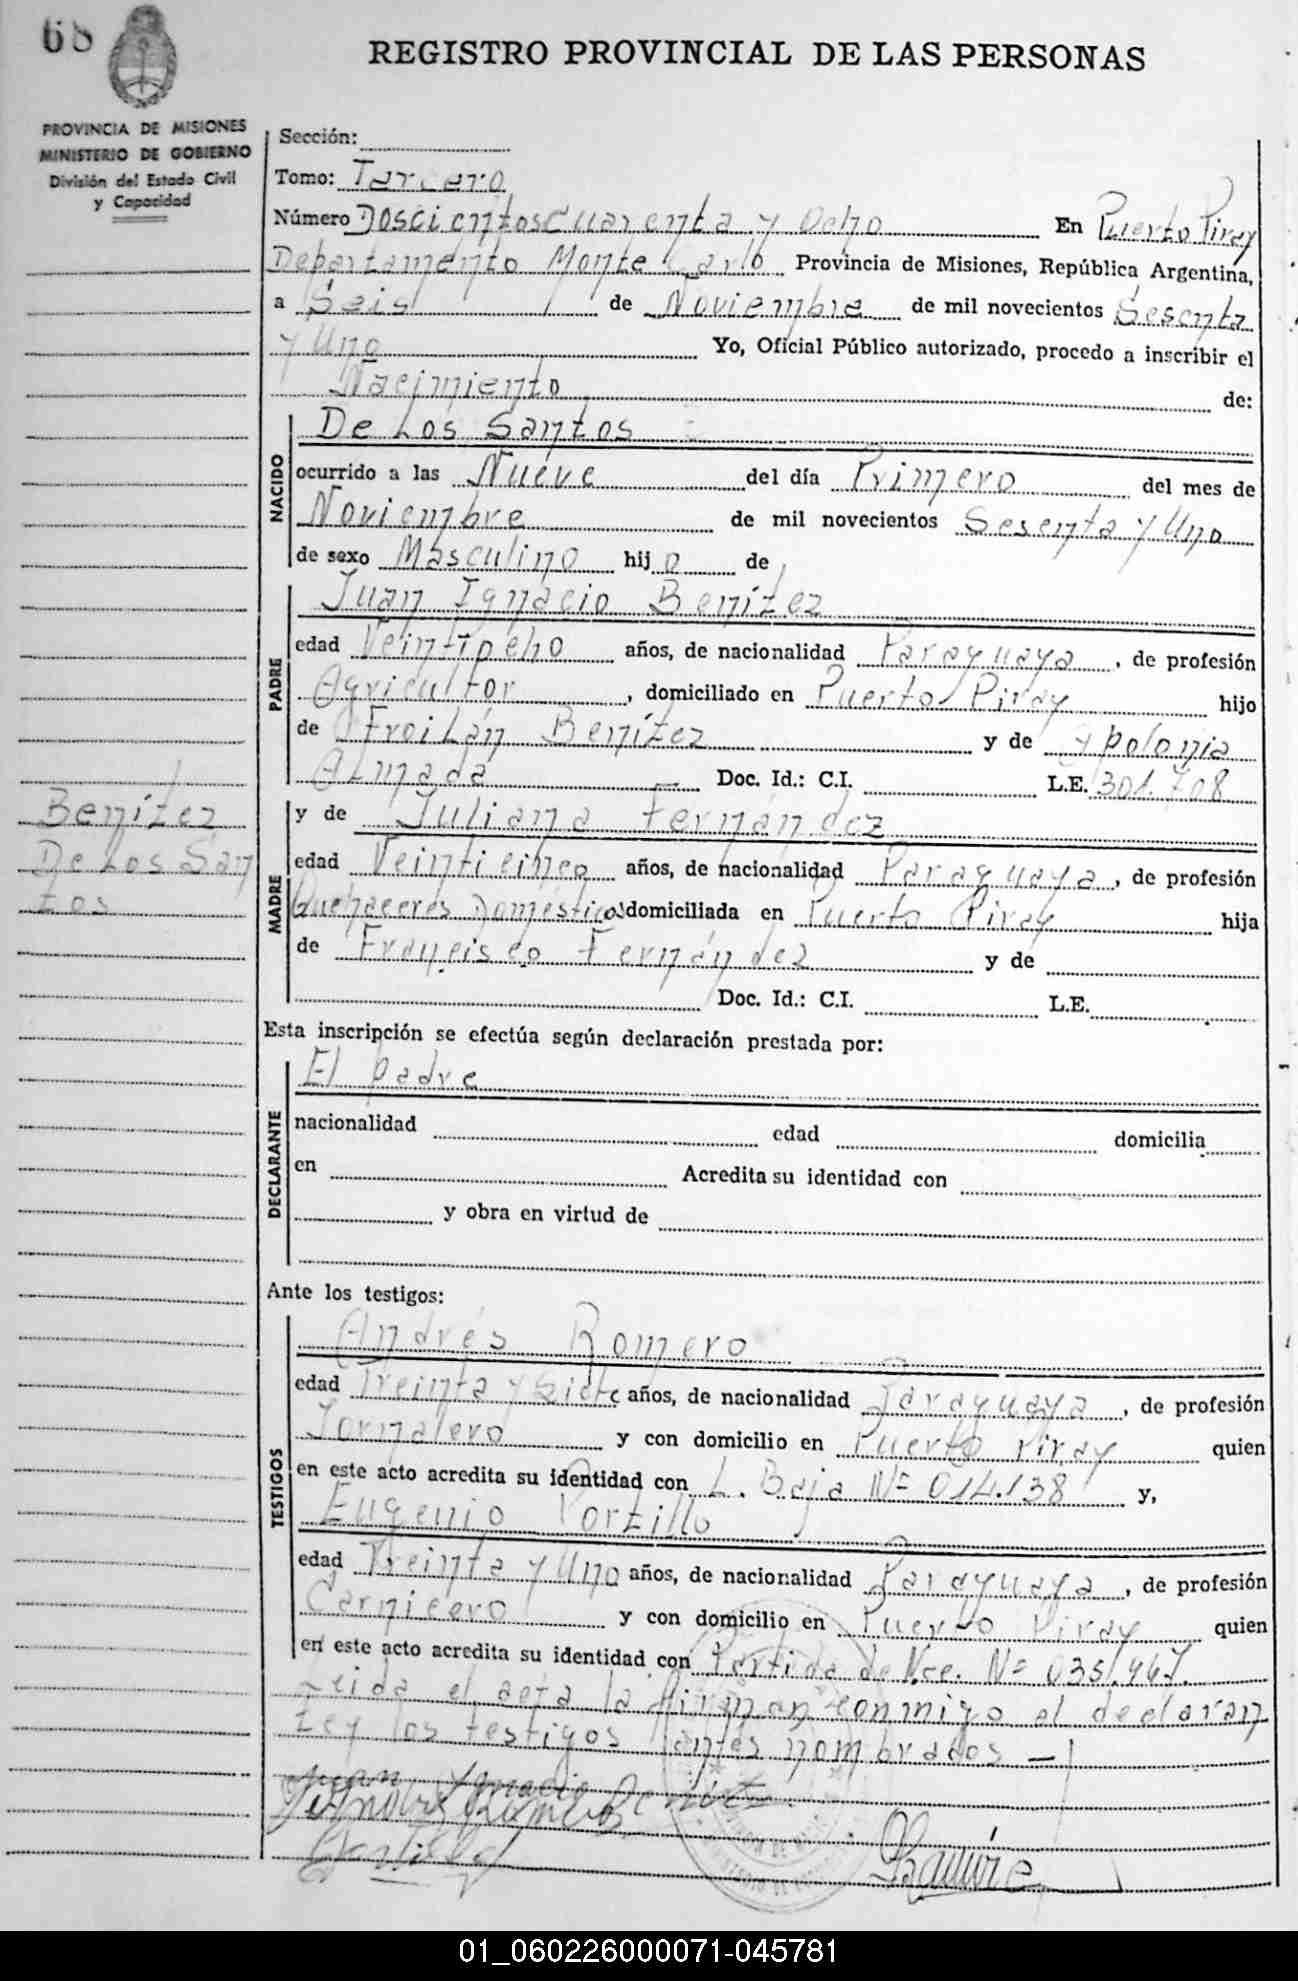 68
REGISTRO PROVINCIAL DE LAS PERSONAS
PROVINCIA DE MISIONES
MINISTERIO DE GOBIERNO
División del Estado Civil
y Capacidad
Sección:
Tomo: Tercero
Número Doscientos Cuarenta y Ocho En Puerto Piray
Departamento Monte Carlo Provincia de Misiones, República Argentina,
a Seis de Noviembre de mil novecientos Sesenta
y Uno Yo, Oficial Público autorizado, procedo a inscribir el
Nacimiento de:
NACIDO
De Los Santos
ocurrido a las Nueve del día Primero del mes de
Noviembre de mil novecientos Sesenta y Uno
de sexo Masculino hij o de
PADRE
Juan Ignacio Benítez
edad Veintiocho años, de nacionalidad Paraguaya, de profesión
Agricultor, domiciliado en Puerto Piray hijo
de Froilán Benítez y de Apolonia
Almada Doc. Id.: C.I. L.E. 301.708
Benítez
De Los San
tos
MADRE
y de Juliana Fernández
edad Veinticinco años, de nacionalidad Paraguaya, de profesión
Quehaceres Domésticos domiciliada en Puerto Piray hija
de Francisco Fernández y de
Doc. Id.: C.I. L.E.
Esta inscripción se efectúa según declaración prestada por:
DECLARANTE
El padre
nacionalidad edad domicilia
en Acredita su identidad con
y obra en virtud de
Ante los testigos:
TESTIGOS
Andrés Romero
edad Treinta y Siete años, de nacionalidad Paraguaya, de profesión
Jornalero y con domicilio en Puerto Piray quien
en este acto acredita su identidad con L. Baja Nº 014.138 y,
Eugenio Portillo
edad Treinta y Uno años, de nacionalidad Paraguaya, de profesión
Carnicero y con domicilio en Puerto Piray quien
en este acto acredita su identidad con Partida de Nce. Nº 035.967.
Leida el acta la firman conmigo el declaran
te y los testigos antes nombrados —
Juan Ygnacio Benitez
Romero
Portillo
01_060226000071-045781